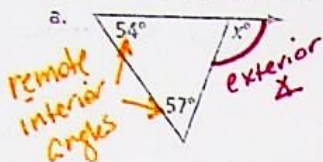 a.
54°
x°
57°
remote
interior
angles
exterior
∡